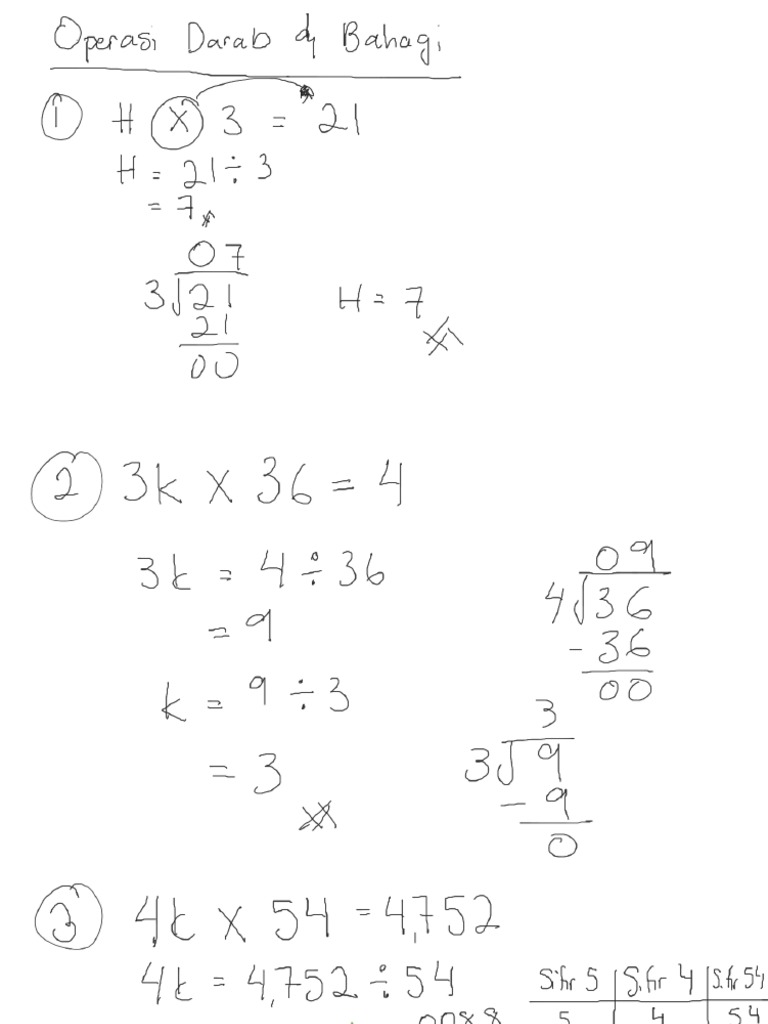 Operasi Darab & Bahagi
① H × 3 = 21
H = 21 ÷ 3
= 7
07
3√21
21
00
H = 7
② 3k × 36 = 4
3k = 4 ÷ 36
= 9
k = 9 ÷ 3
= 3
09
4√36
- 36
00
3
3√9
- 9
0
③ 4k × 54 = 4,752
4k = 4,752 ÷ 54
0088
Sifir 5 | Sifir 4 | Sifir 54
5 | 4 | 54